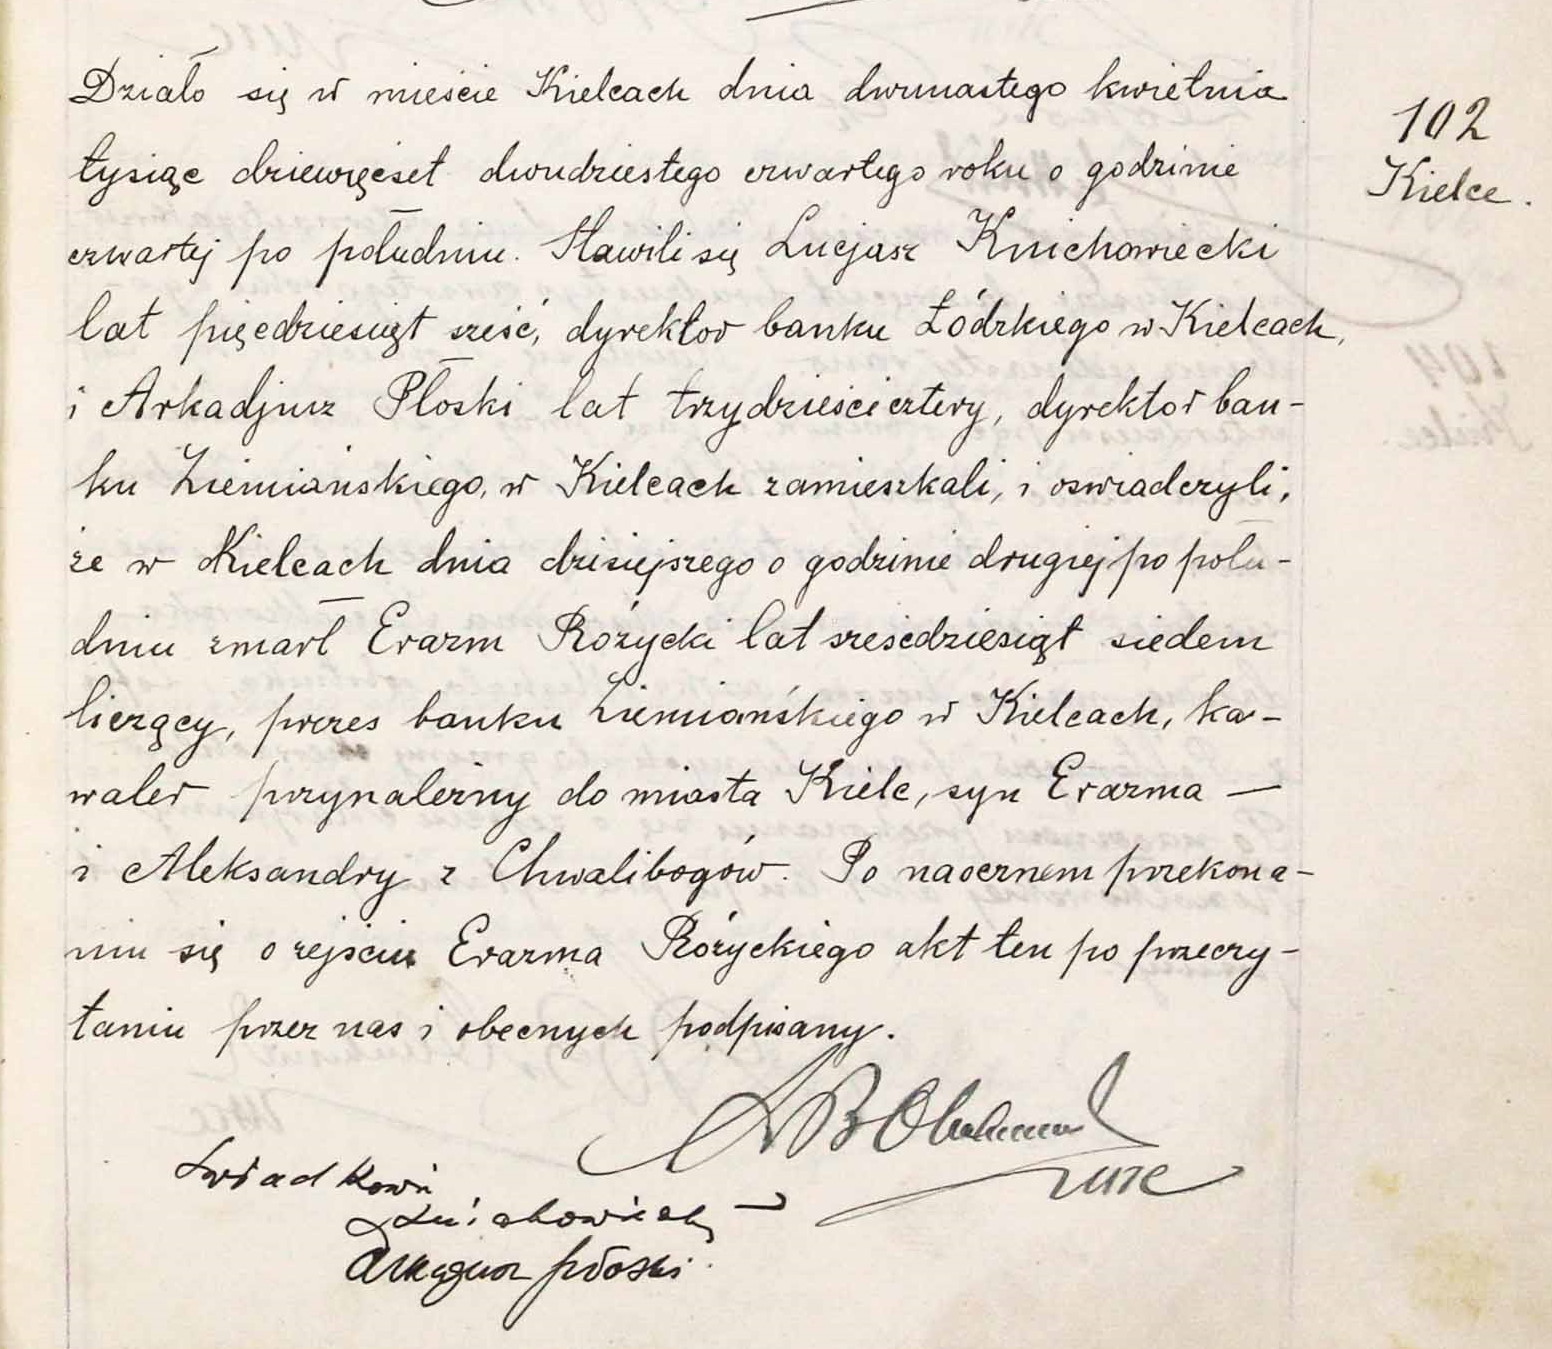 Działo się w mieście Kielcach dnia dwunastego kwietnia
tysiąc dziewięćset dwudziestego czwartego roku o godzinie
czwartej po południu. Stawili się Lucjasz Knichowiecki
lat pięćdziesiąt sześć, dyrektor banku Łódzkiego w Kielcach,
i Arkadjusz Płoski lat trzydzieści cztery, dyrektor ban-
ku Ziemiańskiego, w Kielcach zamieszkali, i oswiadczyli,
że w Kielcach dnia dzisiejszego o godzinie drugiej po połu-
dniu zmarł Erazm Różycki lat sześćdziesiąt siedem
liczący, prezes banku Ziemiańskiego w Kielcach, ka-
waler przynależny do miasta Kielc, syn Erazma —
i Aleksandry z Chwalibogów. Po naocznem przekona-
niu się o zejściu Erazma Różyckiego akt ten po przeczy-
taniu przez nas i obecnych podpisany.
102
Kielce.
Świadkowie
Płoski